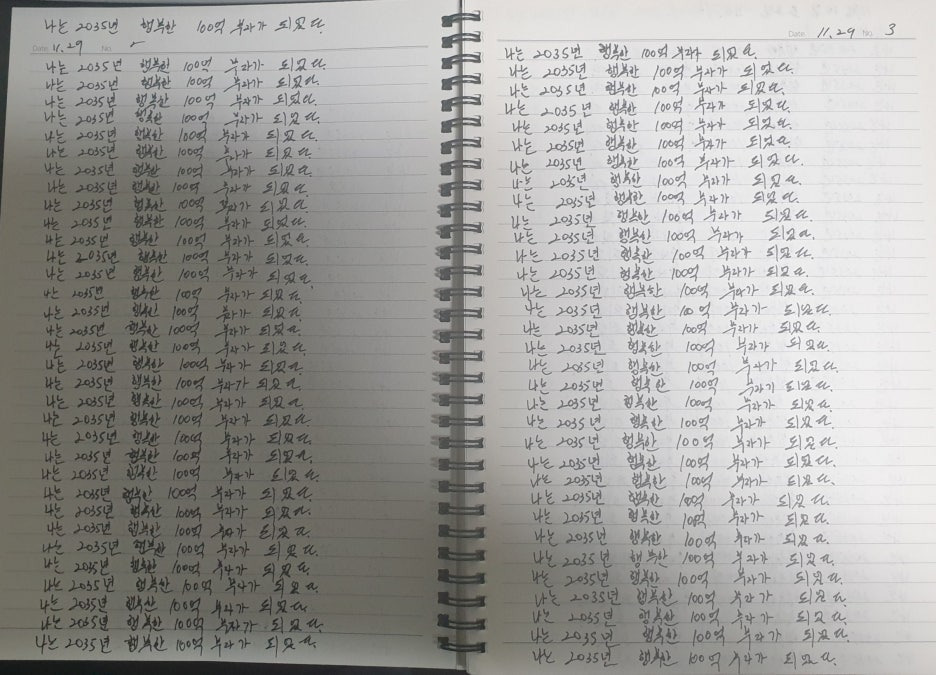 나는 2035년 행복한 100억 부자가 되었다.
Date. 11.29 No. 2
나는 2035년 행복한 100억 부자가 되었다.
나는 2035년 행복한 100억 부자가 되었다.
나는 2035년 행복한 100억 부자가 되었다.
나는 2035년 행복한 100억 부자가 되었다.
나는 2035년 행복한 100억 부자가 되었다.
나는 2035년 행복한 100억 부자가 되었다.
나는 2035년 행복한 100억 부자가 되었다.
나는 2035년 행복한 100억 부자가 되었다.
나는 2035년 행복한 100억 부자가 되었다.
나는 2035년 행복한 100억 부자가 되었다.
나는 2035년 행복한 100억 부자가 되었다.
나는 2035년 행복한 100억 부자가 되었다.
나는 2035년 행복한 100억 부자가 되었다.
나는 2035년 행복한 100억 부자가 되었다.
나는 2035년 행복한 100억 부자가 되었다.
나는 2035년 행복한 100억 부자가 되었다.
나는 2035년 행복한 100억 부자가 되었다.
나는 2035년 행복한 100억 부자가 되었다.
나는 2035년 행복한 100억 부자가 되었다.
나는 2035년 행복한 100억 부자가 되었다.
나는 2035년 행복한 100억 부자가 되었다.
나는 2035년 행복한 100억 부자가 되었다.
나는 2035년 행복한 100억 부자가 되었다.
나는 2035년 행복한 100억 부자가 되었다.
나는 2035년 행복한 100억 부자가 되었다.
나는 2035년 행복한 100억 부자가 되었다.
나는 2035년 행복한 100억 부자가 되었다.
나는 2035년 행복한 100억 부자가 되었다.
나는 2035년 행복한 100억 부자가 되었다.
나는 2035년 행복한 100억 부자가 되었다.
나는 2035년 행복한 100억 부자가 되었다.
나는 2035년 행복한 100억 부자가 되었다.
나는 2035년 행복한 100억 부자가 되었다.
Date. 11.29 No. 3
나는 2035년 행복한 100억 부자가 되었다.
나는 2035년 행복한 100억 부자가 되었다.
나는 2035년 행복한 100억 부자가 되었다.
나는 2035년 행복한 100억 부자가 되었다.
나는 2035년 행복한 100억 부자가 되었다.
나는 2035년 행복한 100억 부자가 되었다.
나는 2035년 행복한 100억 부자가 되었다.
나는 2035년 행복한 100억 부자가 되었다.
나는 2035년 행복한 100억 부자가 되었다.
나는 2035년 행복한 100억 부자가 되었다.
나는 2035년 행복한 100억 부자가 되었다.
나는 2035년 행복한 100억 부자가 되었다.
나는 2035년 행복한 100억 부자가 되었다.
나는 2035년 행복한 100억 부자가 되었다.
나는 2035년 행복한 100억 부자가 되었다.
나는 2035년 행복한 100억 부자가 되었다.
나는 2035년 행복한 100억 부자가 되었다.
나는 2035년 행복한 100억 부자가 되었다.
나는 2035년 행복한 100억 부자가 되었다.
나는 2035년 행복한 100억 부자가 되었다.
나는 2035년 행복한 100억 부자가 되었다.
나는 2035년 행복한 100억 부자가 되었다.
나는 2035년 행복한 100억 부자가 되었다.
나는 2035년 행복한 100억 부자가 되었다.
나는 2035년 행복한 100억 부자가 되었다.
나는 2035년 행복한 100억 부자가 되었다.
나는 2035년 행복한 100억 부자가 되었다.
나는 2035년 행복한 100억 부자가 되었다.
나는 2035년 행복한 100억 부자가 되었다.
나는 2035년 행복한 100억 부자가 되었다.
나는 2035년 행복한 100억 부자가 되었다.
나는 2035년 행복한 100억 부자가 되었다.
나는 2035년 행복한 100억 부자가 되었다.